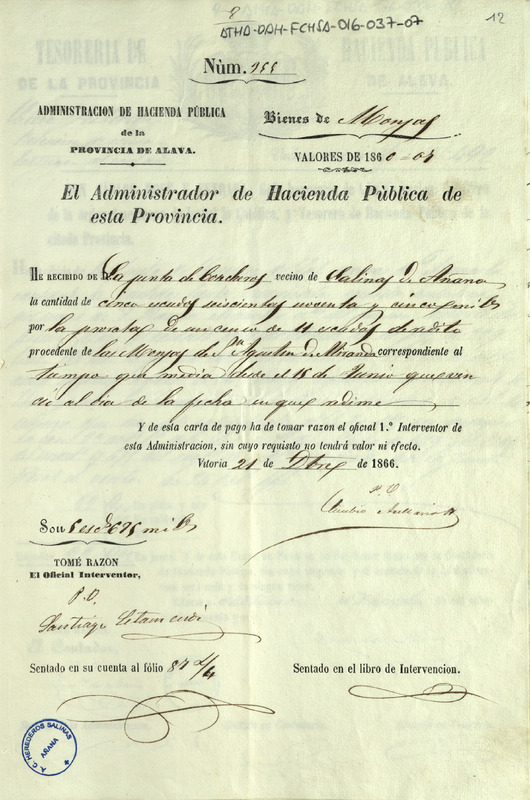 ATHA-DAH-FCHSA-016-037-07
12
Núm. 255
ADMINISTRACION DE HACIENDA PÚBLICA
de la
PROVINCIA DE ALAVA.
Bienes de Monjas
VALORES DE 1860-64
El Administrador de Hacienda Pùblica de
esta Provincia.
HE RECIBIDO DE La junta de Erederos vecino de Salinas de Añana
la cantidad de cinco escudos seiscientas noventa y cinco mils
por la prorata de un censo de 11 escudos de redito
procedente de las Monjas de Sn Agustin de Miranda correspondiente al
tiempo que media desde el 15 de Junio que ven
ció al dia de la fecha en que redime
Y de esta carta de pago ha de tomar razon el oficial 1.º Interventor de
esta Administracion, sin cuyo requisito no tendrá valor ni efecto.
Vitoria 21 de Dbre de 1866.
P. O.
Claudio
Son 5 escds 695 mils
TOMÉ RAZON
El Oficial Interventor,
P. O.
Santiago
Sentado en su cuenta al fólio 87
Sentado en el libro de Intervencion.
J. C. HEREDEROS SALINAS
AÑANA